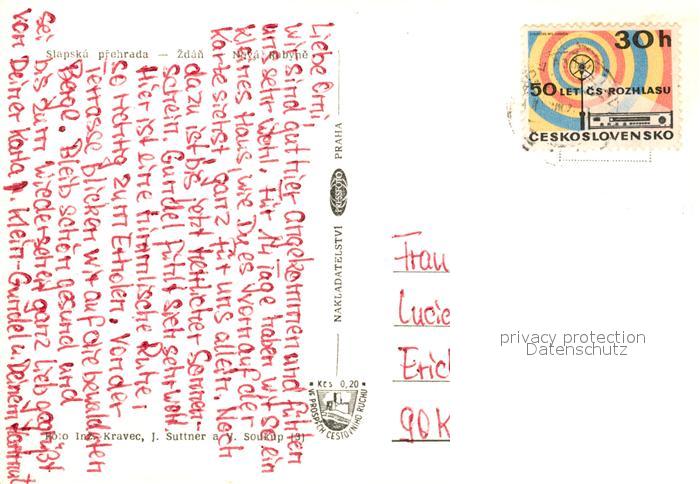 Slapská přehrada — Ždáň — Nová Rabyně
Liebe Omi,
Wir sind gut hier angekommen und fühlen
uns sehr wohl. Für 14 Tage haben wir so ein
kleines Haus, wie Du es vorn auf der
Karte siehst ganz für uns allein. Noch
dazu ist bis jetzt herrlicher Sonnen-
schein. Gundel fühlt sich sehr wohl
Hier ist eine himmlische Ruhe;
so richtig zum Erholen. Von der
Terrasse blicken wir auf die bewaldeten
Berge. Bleib schön gesund und
sei bis zum Wiedersehen ganz lieb gegrüßt
von Deiner Karla, Klein-Gundel u. Deinem Hartmut
Foto Ing. Kravec, J. Suttner a V. Soukup (3)
NAKLADATELSTVÍ PRESSFOTO PRAHA
Kčs 0,20
VE PROSPĚCH CESTOVNÍHO RUCHU
30 h
50 LET ČS. ROZHLASU
ČESKOSLOVENSKO
Frau
Lucie
Erich
90 K
privacy protection
Datenschutz